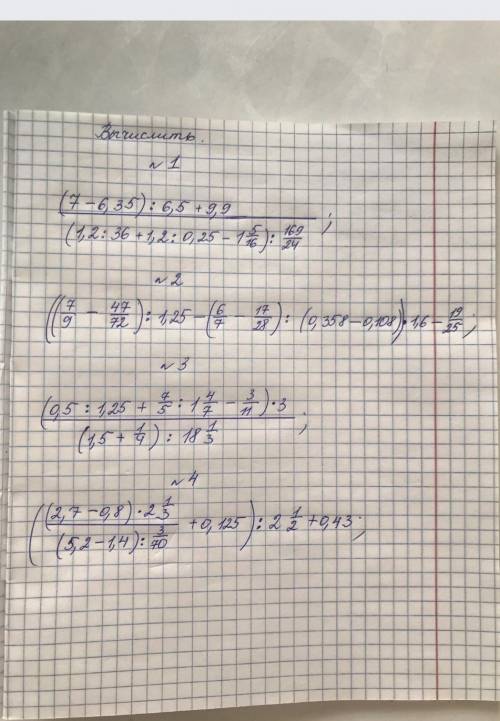 Вычислить.
№ 1
(7 − 6,35) : 6,5 + 9,9
(1,2 : 36 + 1,2 : 0,25 − 1 5/16) : 169/24 ;
№ 2
((7/9 − 47/72) : 1,25 − (6/7 − 17/28) : (0,358 − 0,108)) · 1,6 − 19/25 ;
№ 3
(0,5 : 1,25 + 7/5 : 1 4/7 − 3/11) · 3
(1,5 + 1/4) : 18 1/3 ;
№ 4
((2,7 − 0,8) · 2 1/3
(5,2 − 1,4) : 3/70 + 0,125) : 2 1/2 + 0,43 ;